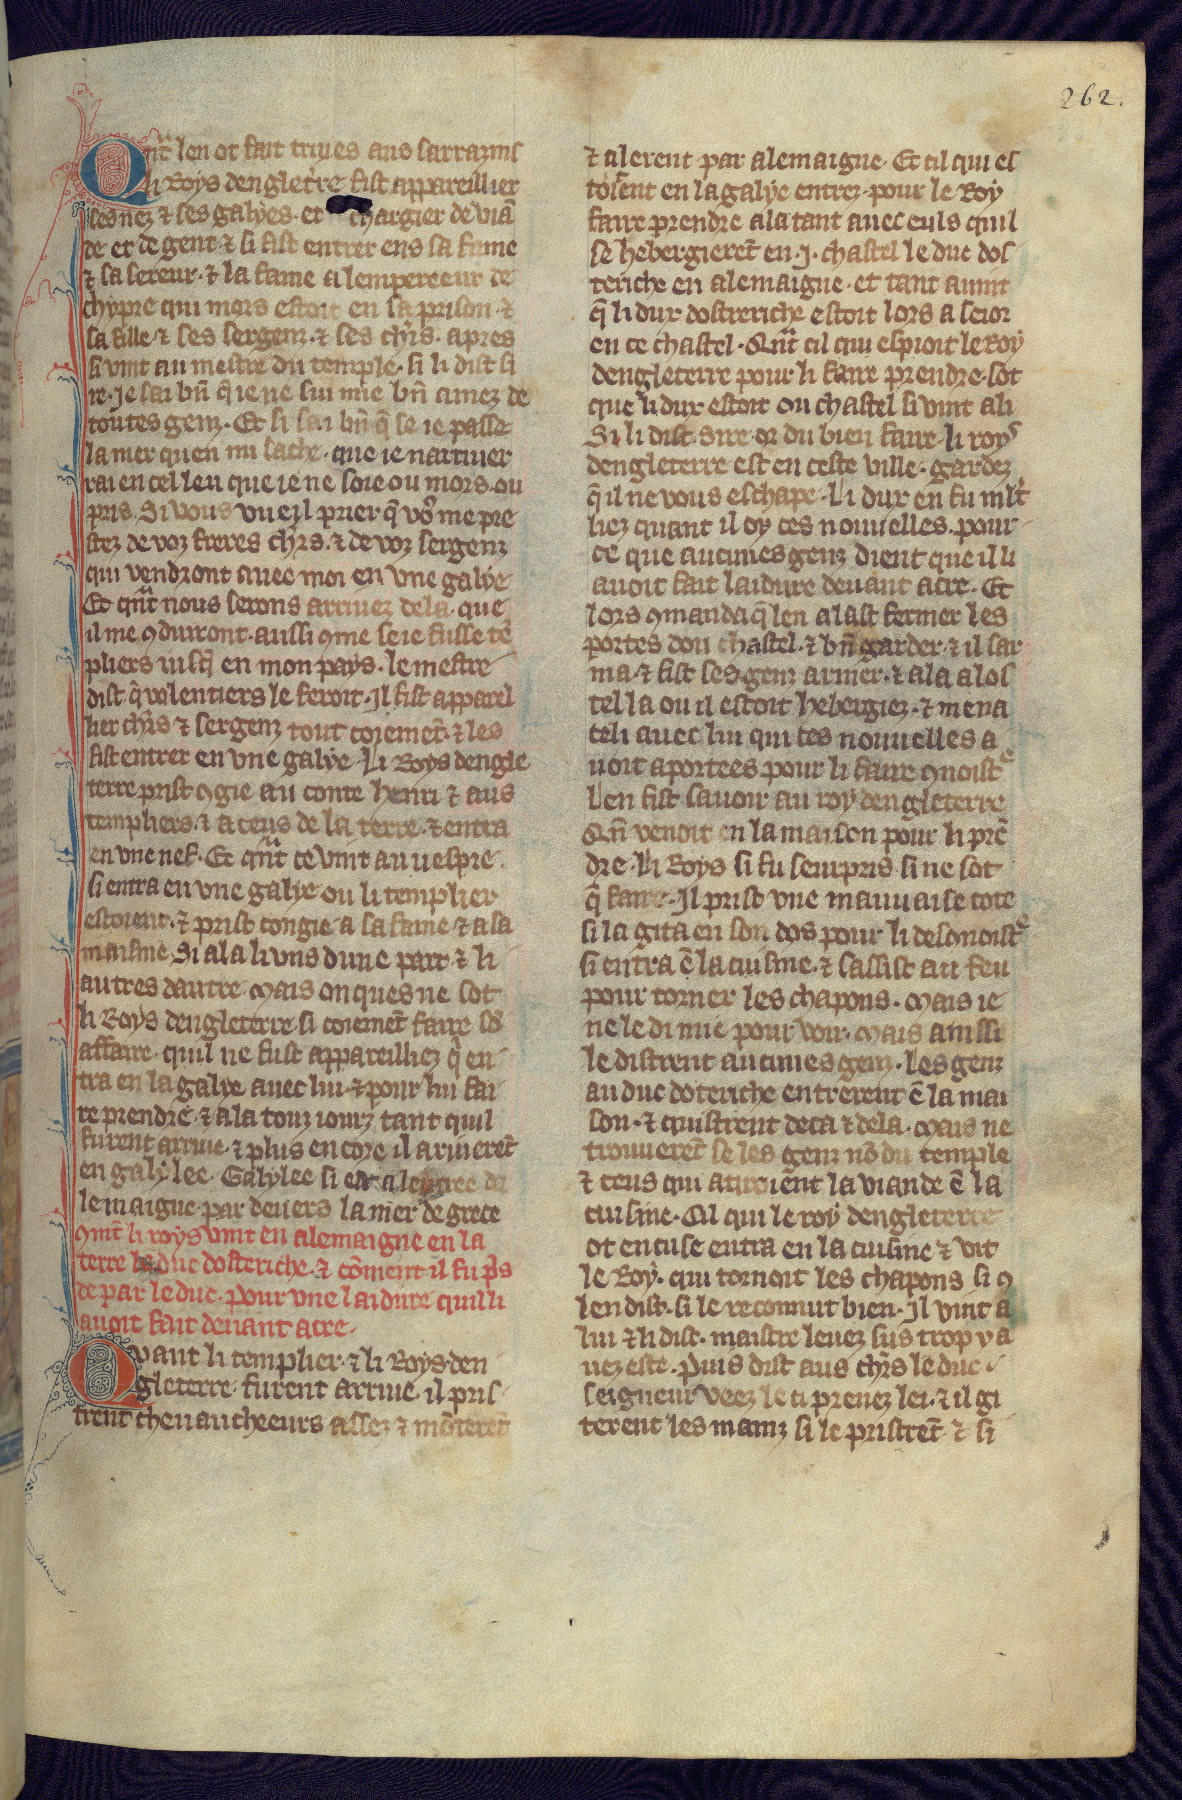 262.
Qnt len ot fait triues aus sarrazins
li Roys dengleterre fist appareillier
ses nez & ses galyes. et chargier de viā
de et de gent. & si fist entrer ens sa fame
& sa sereur. & la fame a lempereeur de
chypre qui mors estoit en sa prison. &
sa fille. & ses sergenz. & ses chrs. apres
si vint au mestre du temple. si li dist si
re. Je sai bn̄ q̄ ie ne sui mie bn̄ amez de
toutes genz. Et si sai bn̄ q̄ se ie passe
la mer quen mi sache. que ie narriuer
rai en cel leu que ie ne soie ou mors. ou
pris. Si vous vueil prier q̄ vos me pre
stez de voz freres chrs. & de voz sergenz
qui vendront auec moi en vne galye
Et qnt nous serons arriuez de la. que
il me 9duiront. aussi 9me se ie fusse tē
pliers iusq̄ en mon pays. le mestre
dist q̄ volentiers le feroit. Il fist apparel
lier chrs & sergenz tout coiemēt. & les
fist entrer en vne galye. Li Roys dengle
terre prist 9gie au conte henri & aus
templiers. & a ceus de la terre. & entra
en vne nef. Et qnt ce vint au uespre.
si entra en vne galye ou li templier
estoient. & prist congie a sa fame & a sa
maisnie. Si ala li vns dune part & li
autres dautre. Mais onques ne sot
li Roys dengleterre si coiemēt faire sō
affaire. quil ne fust appareilliez q̄ en
tra en la galye auec lui. & pour lui fai
re prendre. & ala touz iourz tant quil
furent arriue. & plus encore il ariuerēt
en galylee. Galylee si est a lentree da
lemaigne par deuers la mer de grece
9mt̄ li roys vint en alemaigne en la
terre le duc dosteriche. & cōment il fu pris
de par le duc. pour vne laidure quil li
auoit fait deuant acre.
Quant li templier. & li Roys den
gleterre furent arriue. il pris
trent cheuaucheeurs assez & mōterēt
& alerent par alemaigne. Et cil qui es
toient en la galye entrez pour le Roy
faire prendre ala tant auec euls quil
se hebergierēt en .j. chastel le duc dos
teriche en alemaigne. et tant auint
q̄ li dux dostreriche estoit lors a seior
en ce chastel. Qnt cil qui espioit le Roy
dengleterre pour li faire prendre. sot
que li dux estoit ou chastel si vint a li
Si li dist. sire or du bien faire. li roys
dengleterre est en ceste ville. gardez
q̄ il ne vous eschape. Li dux en fu mlt̄
liez quant il oy ces nouuelles. pour
ce que aucunes genz dient que il li
auoit fait laidure deuant acre. Et
lors 9manda q̄ len alast fermer les
portes dou chastel. & bn̄ garder. & il sar
ma. & fist ses genz armer. & ala a los
tel la ou il estoit hebergiez. & mena
celi auec lui qui ces nouuelles a
uoit aportees pour li faire 9noistre
Len fist sauoir au roy dengleterre
Qn̄ venoit en la maison pour li prē
dre. Li Roys si fu seurpris. si ne sot
q̄ faire. Il prist vne mauuaise cote
si la gita en son dos pour li desonoistre
si entra ē la cuisine. & sassist au feu
pour torner les chapons. Mais ie
ne le di mie pour voir. Mais ainssi
le distrent aucunes genz. Les genz
au duc doteriche entrerent ē la mai
son. & quistrent deca & dela. Mais ne
trouuerēt se les genz nō du temple
& ceus qui atiroiēnt la viande ē la
cuisine. Cil qui le roy dengleterre
ot encuse entra en la cuisine & vit
le Roy. qui tornoit les chapons si 9
len dist. si le reconnut bien. Il vint a
lui & li dist. maistre leuez sus trop y a
uez este. Puis dist aus chrs le duc
seigneur veez le ci prenez lei. & il gi
terent les mainz si le pristrēt. & si